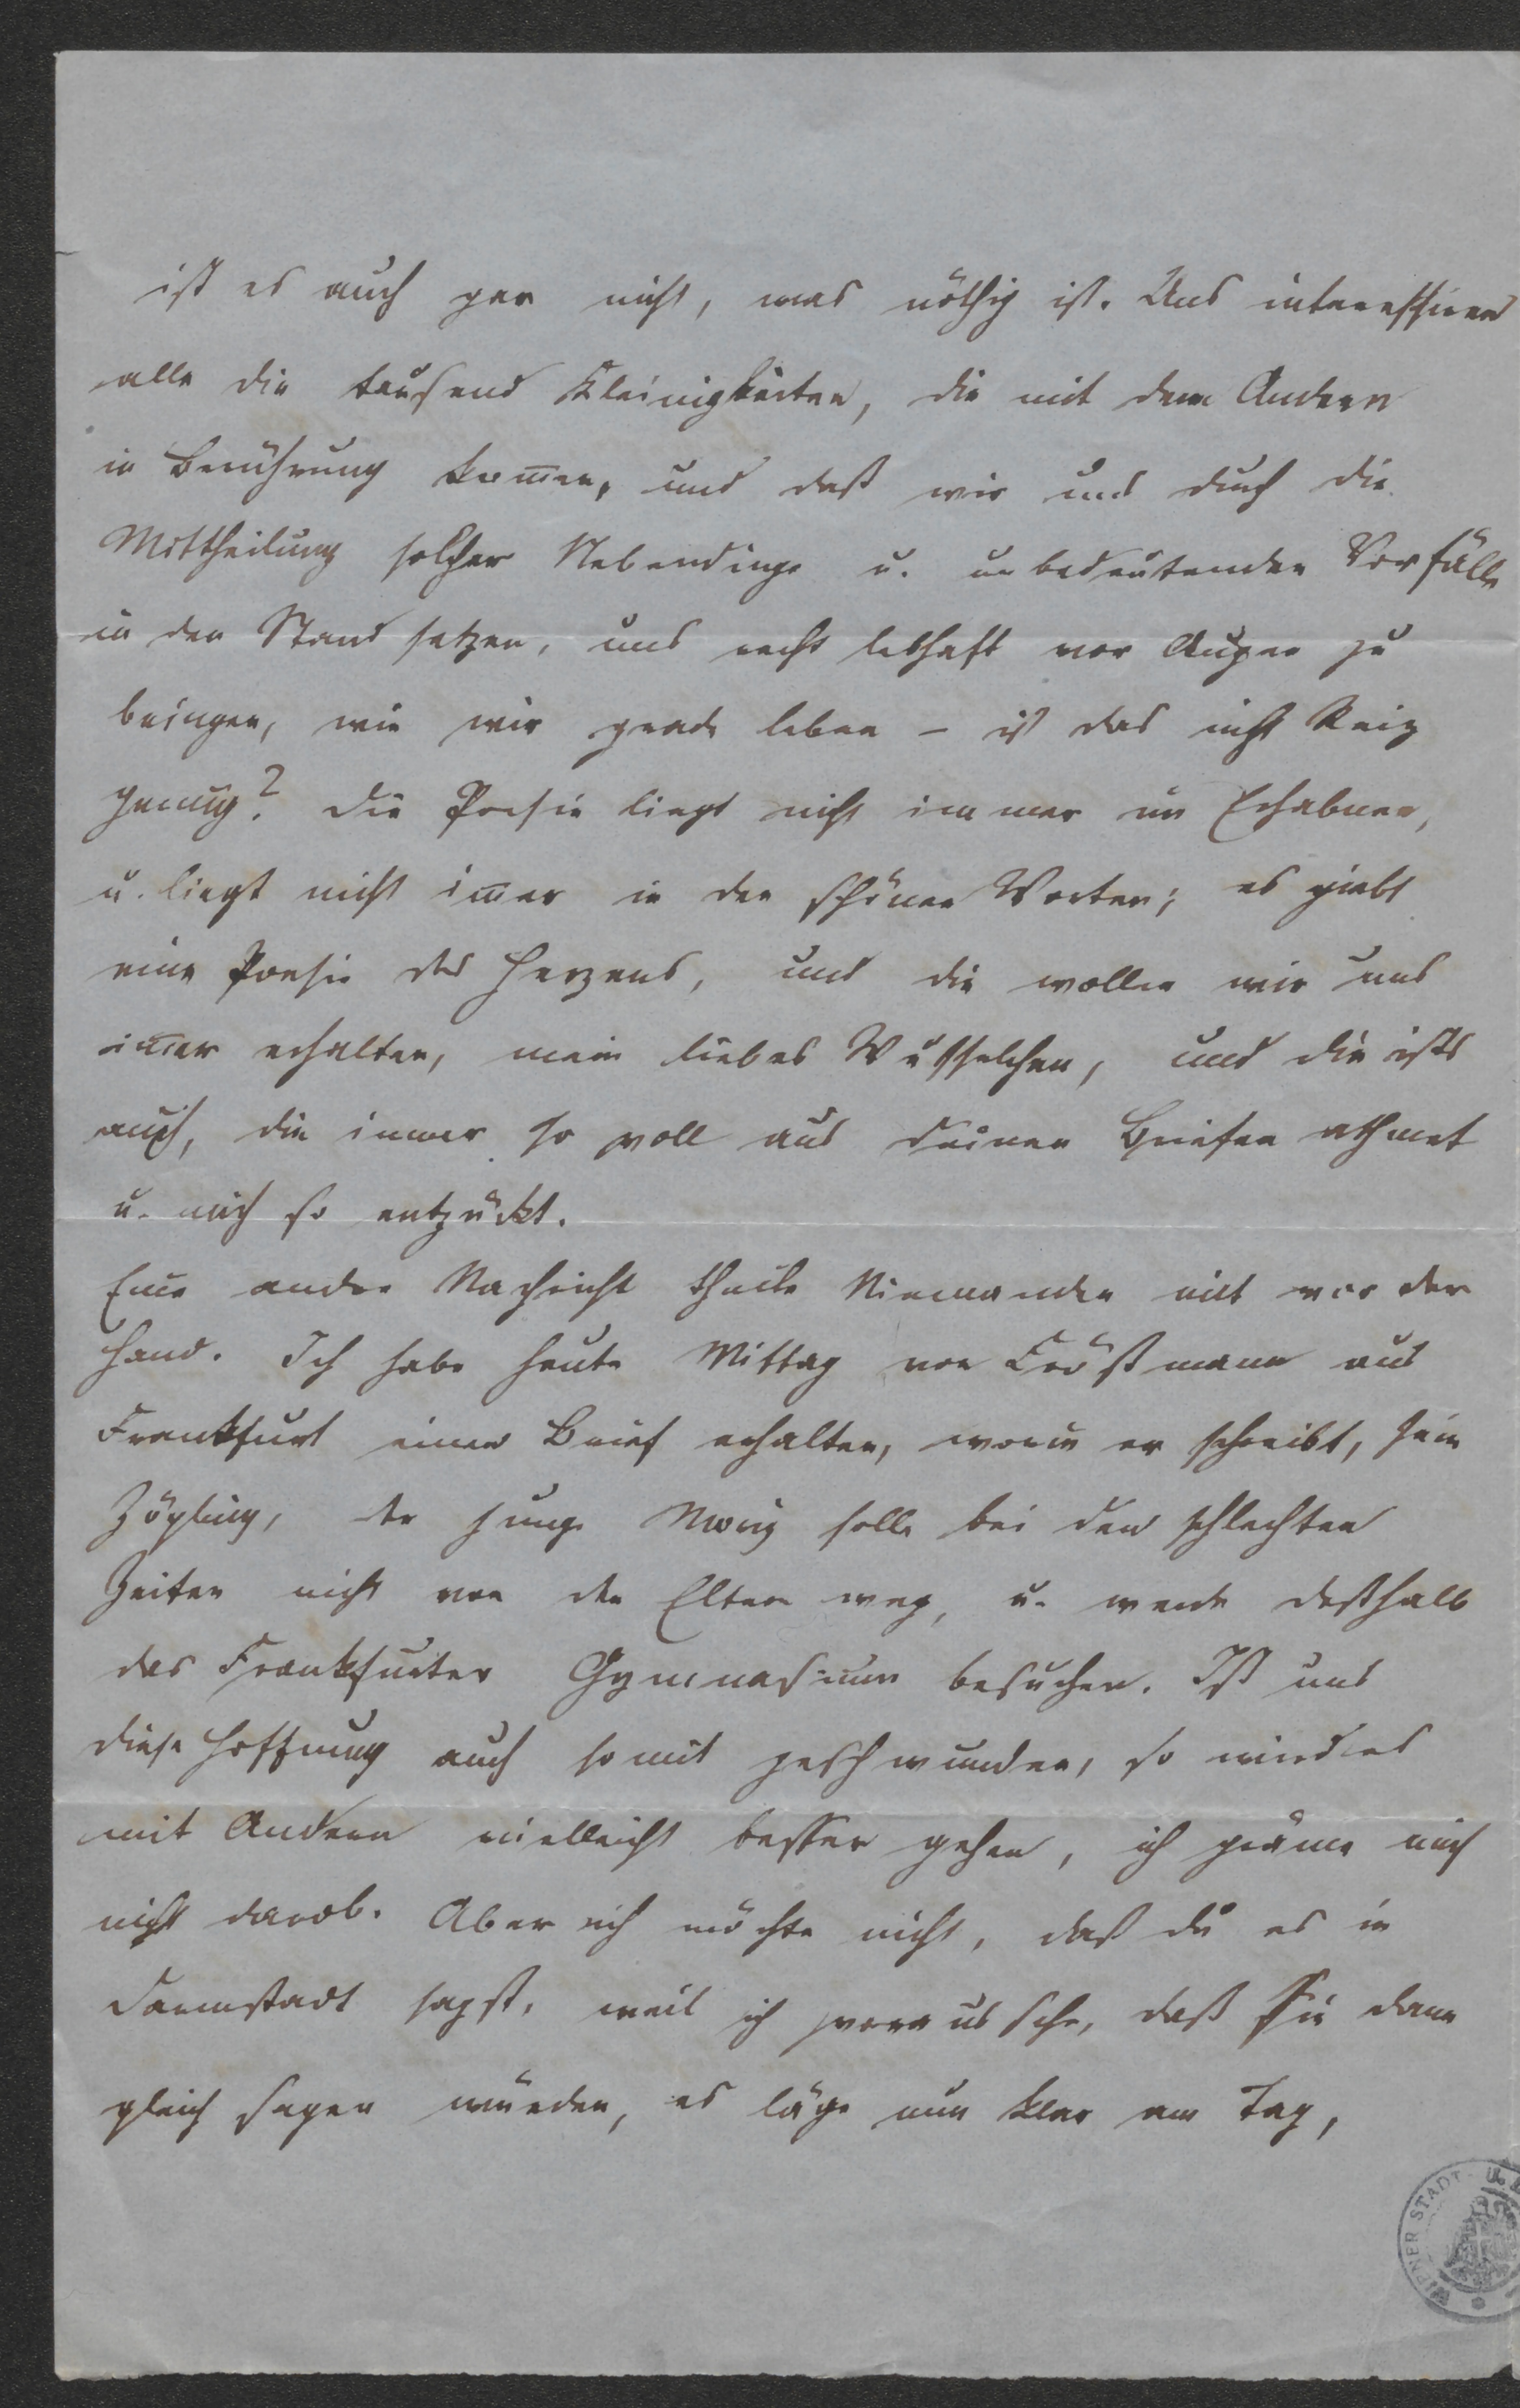 ist es auch gar nicht, was nöthig ist. Uns interessiren
alle die tausend Kleinigkeiten, die mit dem Andern
in Berührung kom̅en, und daß wir uns durch die
Mittheilung solcher Nebendinge u. unbedeutenden Vorfälle
in den Stand setzen, uns recht lebhaft vor Augen zu
bringen, wie wir grade leben – ist das nicht Reiz
genug? Die Poesie liegt nicht immer im Erhabnen,
u. liegt nicht im̅er in den schönen Worten; es giebt
eine Poesie des Herzens, und die wollen wir uns
im̅er erhalten, mein liebes Wusselchen, und die ists
auch, die immer so voll aus Deinen Briefen athmet
u. mich so entzückt.
Eine andre Nachricht theile Niemanden mit vor der
Hand. Ich habe heute Mittag von Crößmann aus
Frankfurt einen Brief erhalten, worin er schreibt, sein
Zögling, der junge solle bei den schlechten
Zeiten nicht von den Eltern weg, u. werde deßhalb
das Frankfurter Gymnasium besuchen. Ist uns
diese Hoffnung auch somit geschwunden, so wird es
mit Andern vielleicht besser gehen, ich gräme mich
nicht darob. Aber ich möchte nicht, daß du es in
Darmstadt sagst, weil ich voraussehe, daß Sie dann
gleich sagen würden, es läge nun klar am Tag,
WIENER STADT- U.